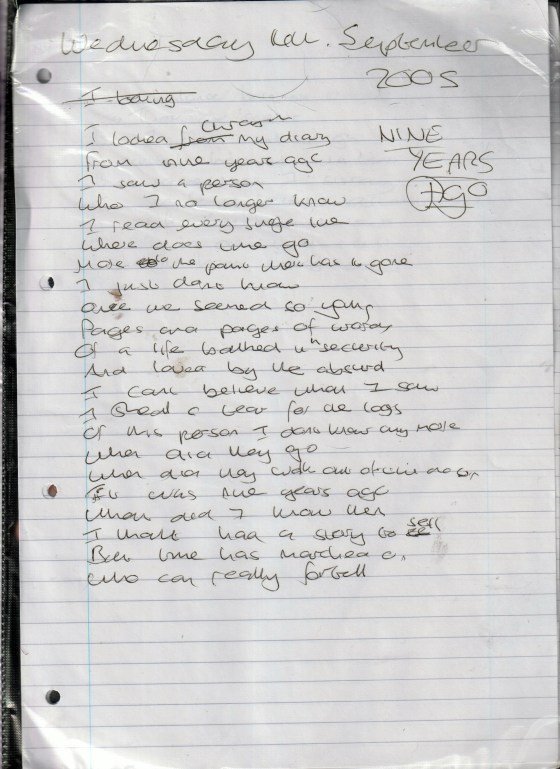 Wednesday September
2005
I being
I looked from through my diary
NINE
YEARS
Ago
from nine years ago
I saw a person
Who I no longer know
I read every single line
Where does time go
More the point where has it gone
I just dont know
Once we seemed so young
Pages and pages of words
Of a life bathed in security
And loved by the absurd
I cant believe what I saw
I shead a tear for the loss
Of this person I dont know any more
When did they go
When did they walk out of the door
It was nine years ago
When did I know then
I had a story to sell
But time has marched on
Who can really fortell